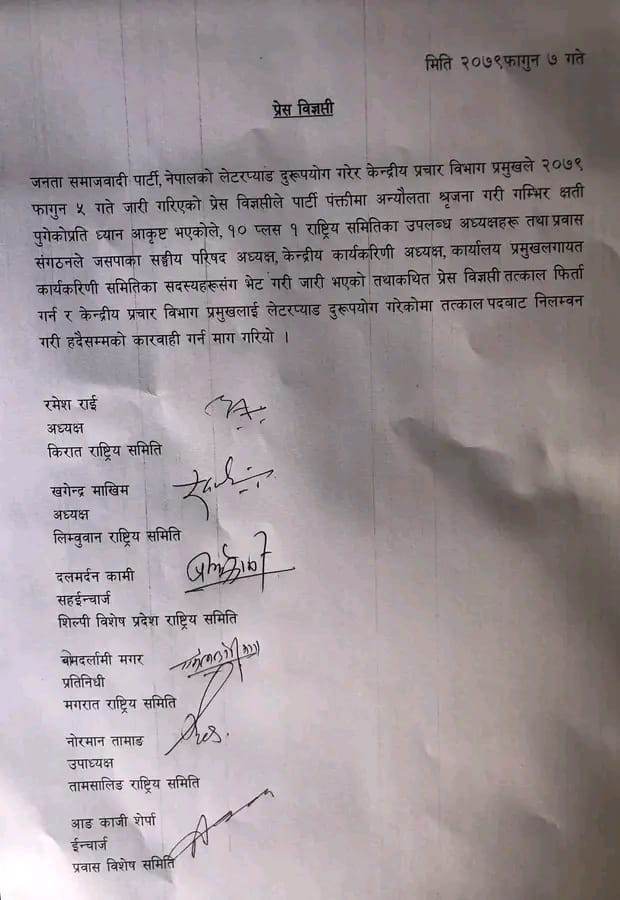 मिति २०७९फागुन ७ गते
प्रेस विज्ञप्ती
जनता समाजवादी पार्टी, नेपालको लेटरप्याड दुरूपयोग गरेर केन्द्रीय प्रचार विभाग प्रमुखले २०७९
फागुन ५ गते जारी गरिएको प्रेस विज्ञप्तीले पार्टी पंक्तीमा अन्यौलता श्रृजना गरी गम्भिर क्षती
पुगेकोप्रति ध्यान आकृष्ट भएकोले, १० प्लस १ राष्ट्रिय समितिका उपलब्ध अध्यक्षहरू तथा प्रवास
संगठनले जसपाका सङ्घीय परिषद अध्यक्ष, केन्द्रीय कार्यकरिणी अध्यक्ष, कार्यालय प्रमुखलगायत
कार्यकरिणी समितिका सदस्यहरूसंग भेट गरी जारी भएको तथाकथित प्रेस विज्ञप्ती तत्काल फिर्ता
गर्न र केन्द्रीय प्रचार विभाग प्रमुखलाई लेटरप्याड दुरूपयोग गरेकोमा तत्काल पदबाट निलम्वन
गरी हदैसम्मको कारवाही गर्न माग गरियो ।
रमेश राई
अध्यक्ष
किरात राष्ट्रिय समिति
खगेन्द्र माखिम
अध्यक्ष
लिम्वुवान राष्ट्रिय समिति
दलमर्दन कामी
सहईन्चार्ज
शिल्पी विशेष प्रदेश राष्ट्रिय समिति
बोमदर्लामी मगर
प्रतिनिधी
मगरात राष्ट्रिय समिति
नोरमान तामाङ
उपाध्यक्ष
तामसालिङ राष्ट्रिय समिति
आङ काजी शेर्पा
ईन्चार्ज
प्रवास विशेष समिति